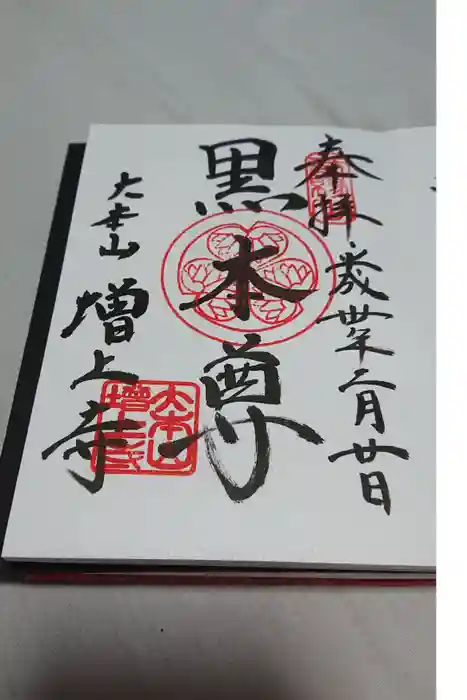 奉拝 平成丗年二月廿日
黒本尊
大本山 増上寺
大本山
増上寺